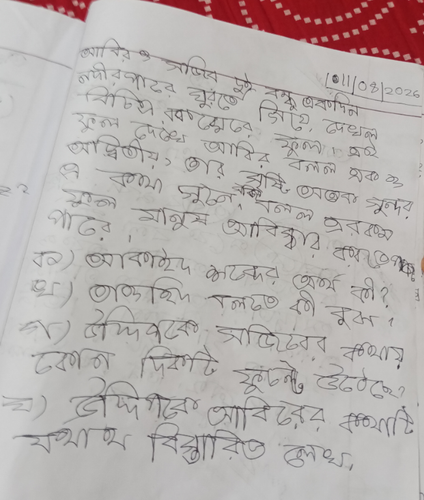 আবির ও সজিব দুই বন্ধু একদিন
01/08/2026
নদীরপাড়ে ঘুরতে গিয়ে দেখল
বিচিত্র রকমের ফুল। এই
ফুল দেখে আবির বলল এক ও
অদ্বিতীয়, তার সৃষ্টি অনেক সুন্দর
এ কথা শুনে বলল এরকম
ফুল মানুষ আবিষ্কার করতে
পারে।
ক) আকাইদ শব্দের অর্থ কী?
খ) তাওহিদ বলতে কী বুঝ।
গ) উদ্দিপকে সজিবের কথায়
কোন দিকটি ফুটে উঠেছে?
ঘ) উদ্দিপকে আবিরের কথাটি
যথাথ বিস্তারিত লেখ।